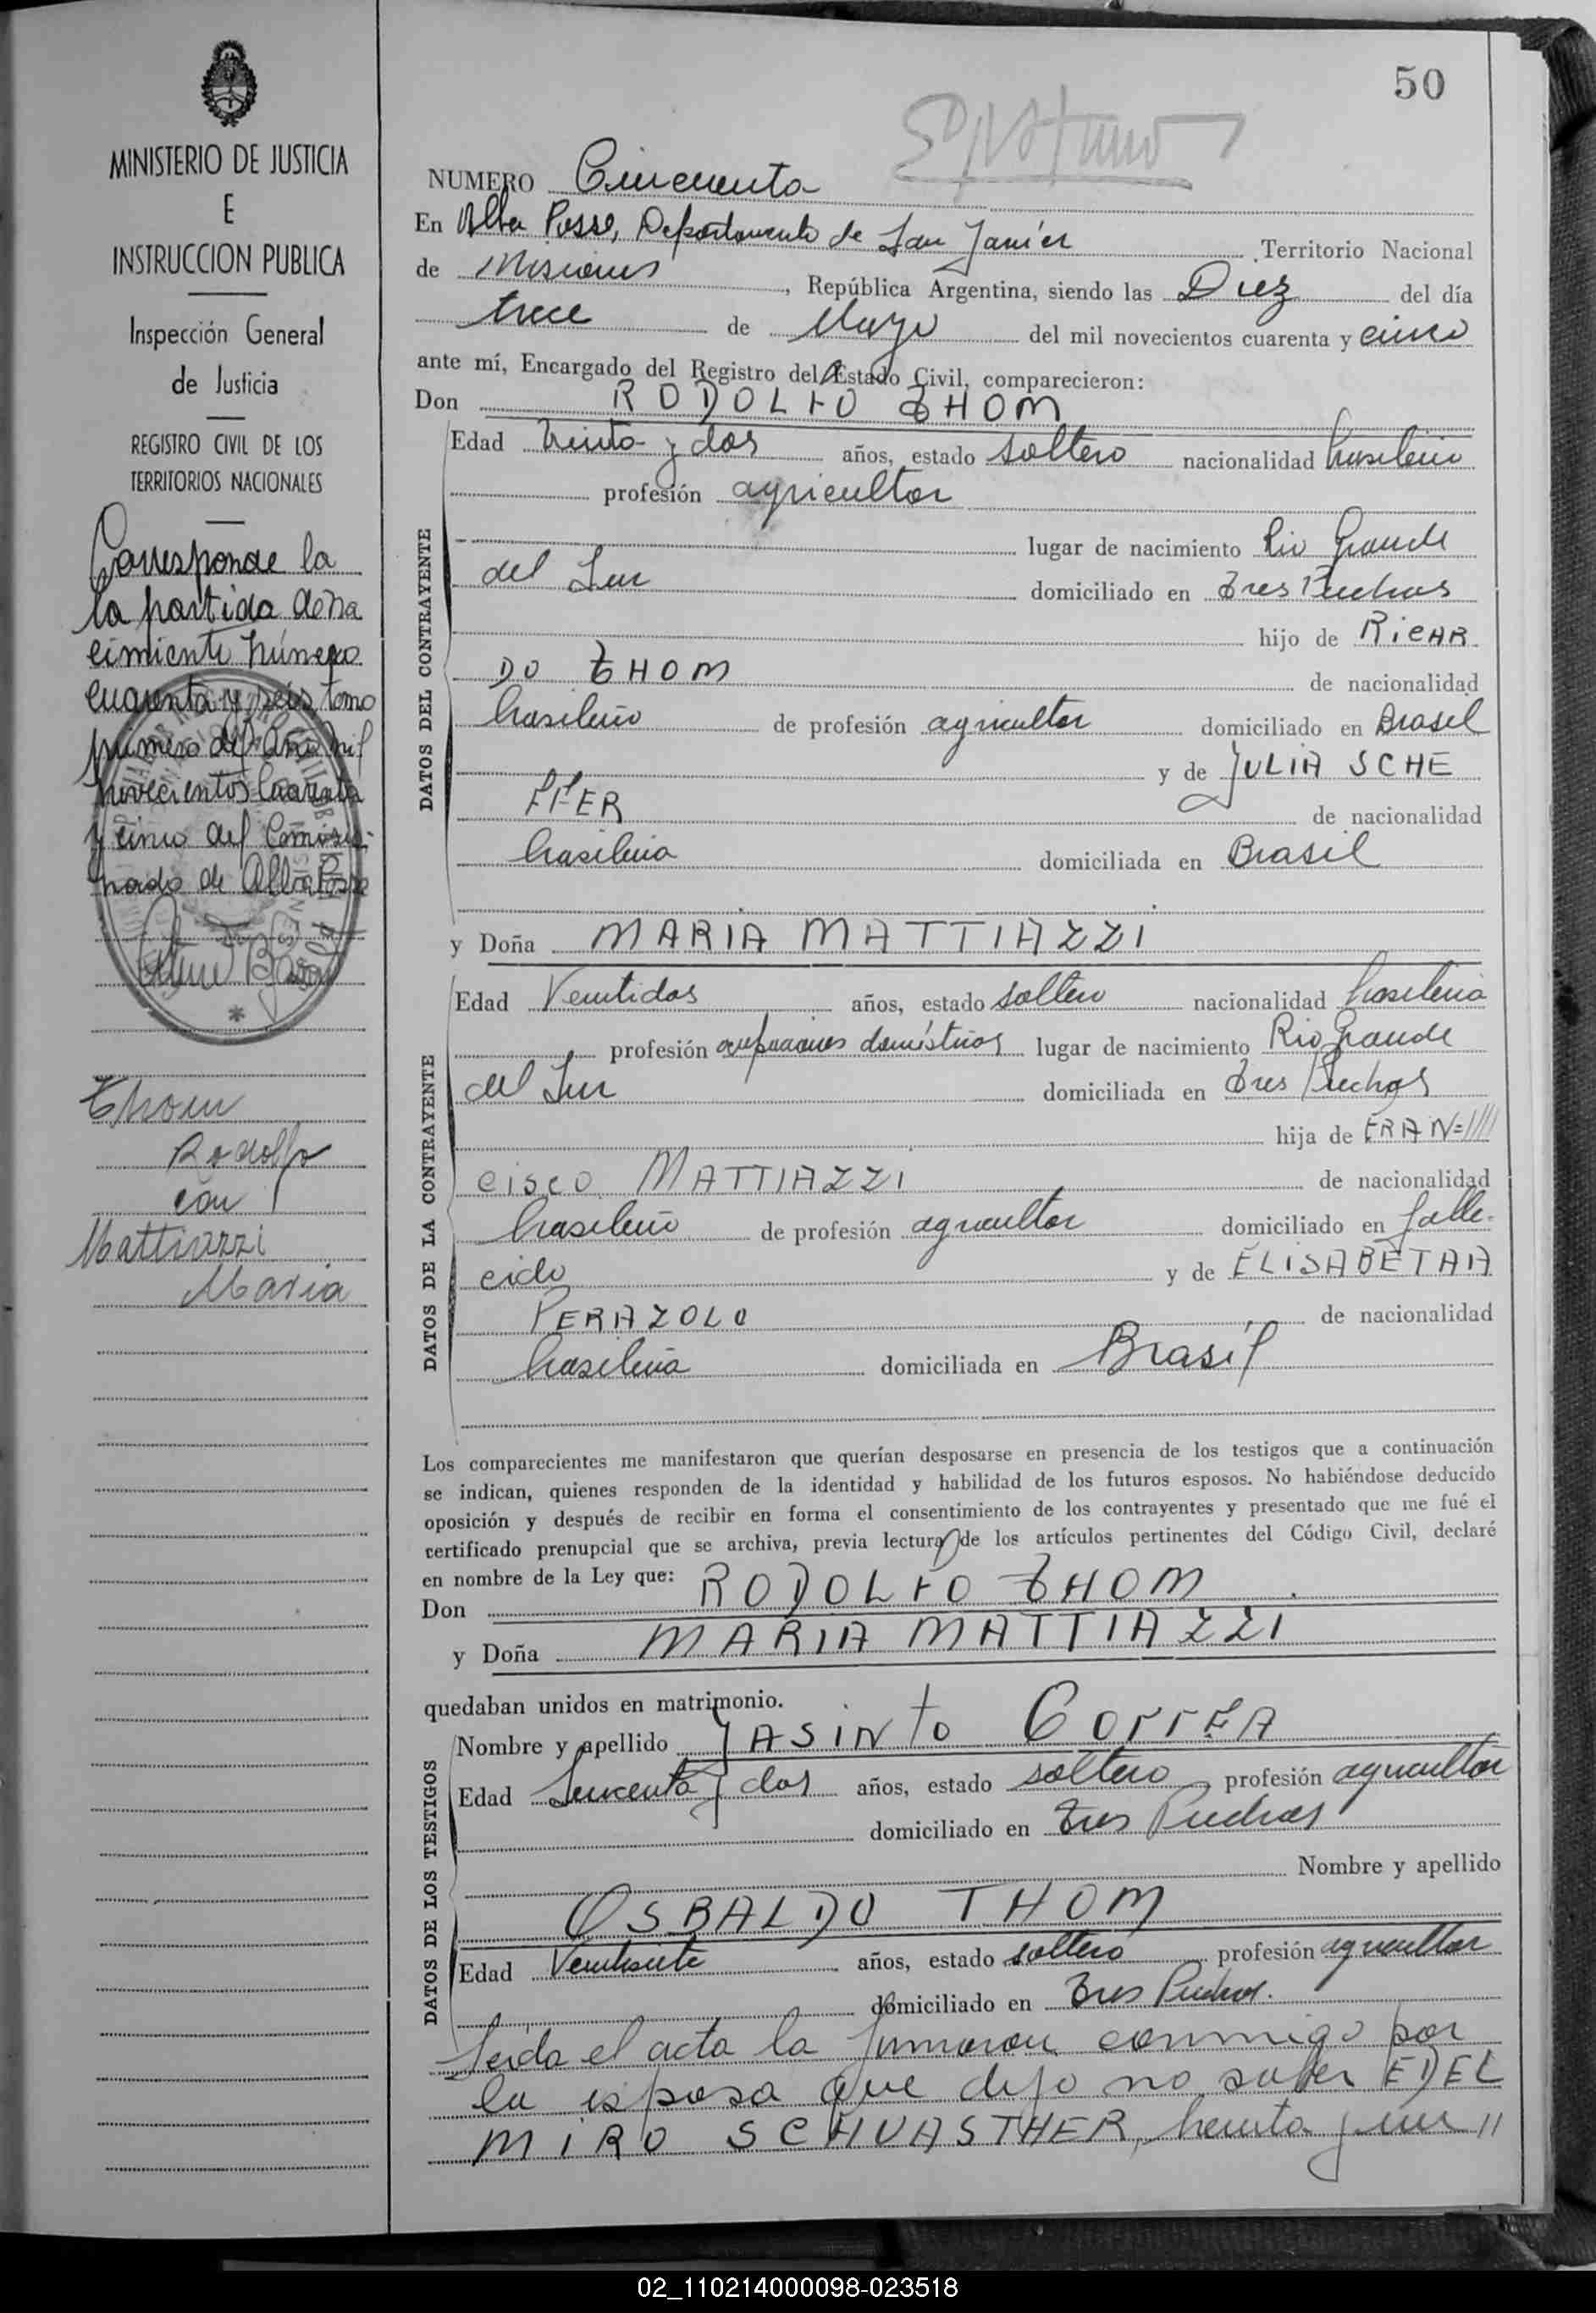 50
MINISTERIO DE JUSTICIA
E
INSTRUCCION PUBLICA
Inspección General
de Justicia
REGISTRO CIVIL DE LOS
TERRITORIOS NACIONALES
Corresponde la
la partida de na
cimiento número
cuarenta y seis tomo
primero del año mil
novecientos cuarenta
y cinco del Comisa
riado de Alba Posse
Thom
Rodolfo
con
Mattiazzi
Maria
NUMERO Cincuenta
En Alba Posse, Departamento de San Javier Territorio Nacional
de Misiones, República Argentina, siendo las Diez del día
trece de Mayo del mil novecientos cuarenta y cinco
ante mí, Encargado del Registro del Estado Civil, comparecieron:
Don RODOLFO THOM
DATOS DEL CONTRAYENTE
Edad treinta y dos años, estado soltero nacionalidad brasileño
profesión agricultor
lugar de nacimiento Rio Grande
del Sur domiciliado en Tres Piedras
hijo de RICAR
DO THOM de nacionalidad
brasileño de profesión agricultor domiciliado en Brasil
y de JULIA SCHE
FFER de nacionalidad
brasileña domiciliada en Brasil
y Doña MARIA MATTIAZZI
DATOS DE LA CONTRAYENTE
Edad Veintidos años, estado soltera nacionalidad brasileña
profesión ocupaciones domésticas lugar de nacimiento Rio Grande
del Sur domiciliada en Tres Piedras
hija de FRAN=
CISCO MATTIAZZI de nacionalidad
brasileño de profesión agricultor domiciliado en falle-
cido y de ELISABETAA
PERAZOLO de nacionalidad
brasileña domiciliada en Brasil
Los comparecientes me manifestaron que querían desposarse en presencia de los testigos que a continuación
se indican, quienes responden de la identidad y habilidad de los futuros esposos. No habiéndose deducido
oposición y después de recibir en forma el consentimiento de los contrayentes y presentado que me fué el
certificado prenupcial que se archiva, previa lectura de los artículos pertinentes del Código Civil, declaré
en nombre de la Ley que:
Don RODOLFO THOM
y Doña MARIA MATTIAZZI
quedaban unidos en matrimonio.
DATOS DE LOS TESTIGOS
Nombre y apellido JASINTO CORREA
Edad y dos años, estado soltero profesión agricultor
domiciliado en Tres Piedras
Nombre y apellido
OSBALDO THOM
Edad Veintisiete años, estado soltero profesión agricultor
domiciliado en Tres Piedras.
Leida el acta la firmaron conmigo por
la esposa que dijo no saber EDEL
MIRO SCHUASTHER, treinta y un //
02_110214000098-023518